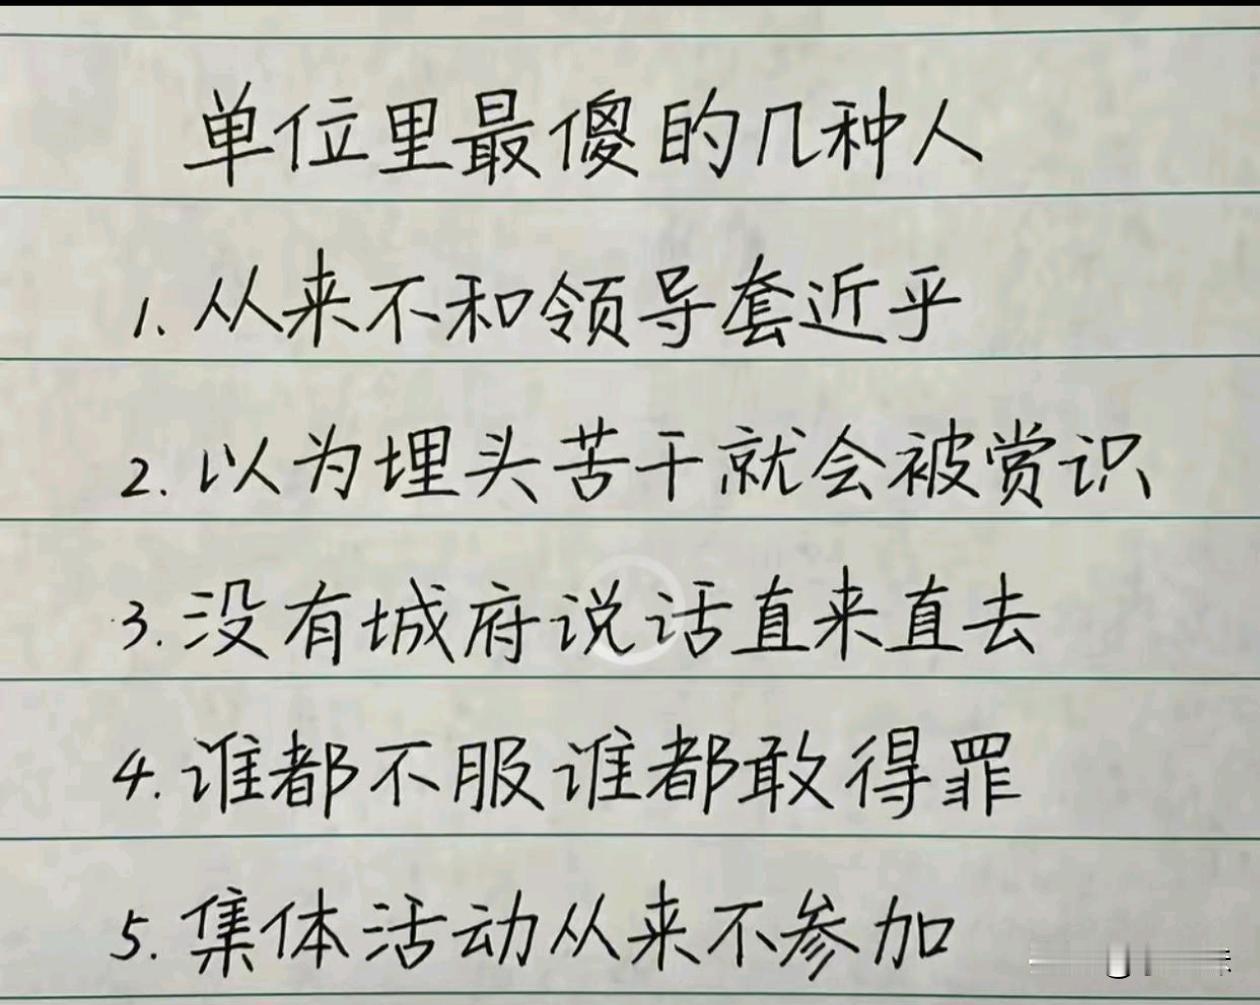 单位里最傻的几种人
1. 从来不和领导套近乎
2. 以为埋头苦干就会被赏识
3. 没有城府说话直来直去
4. 谁都不服谁都敢得罪
5. 集体活动从来不参加